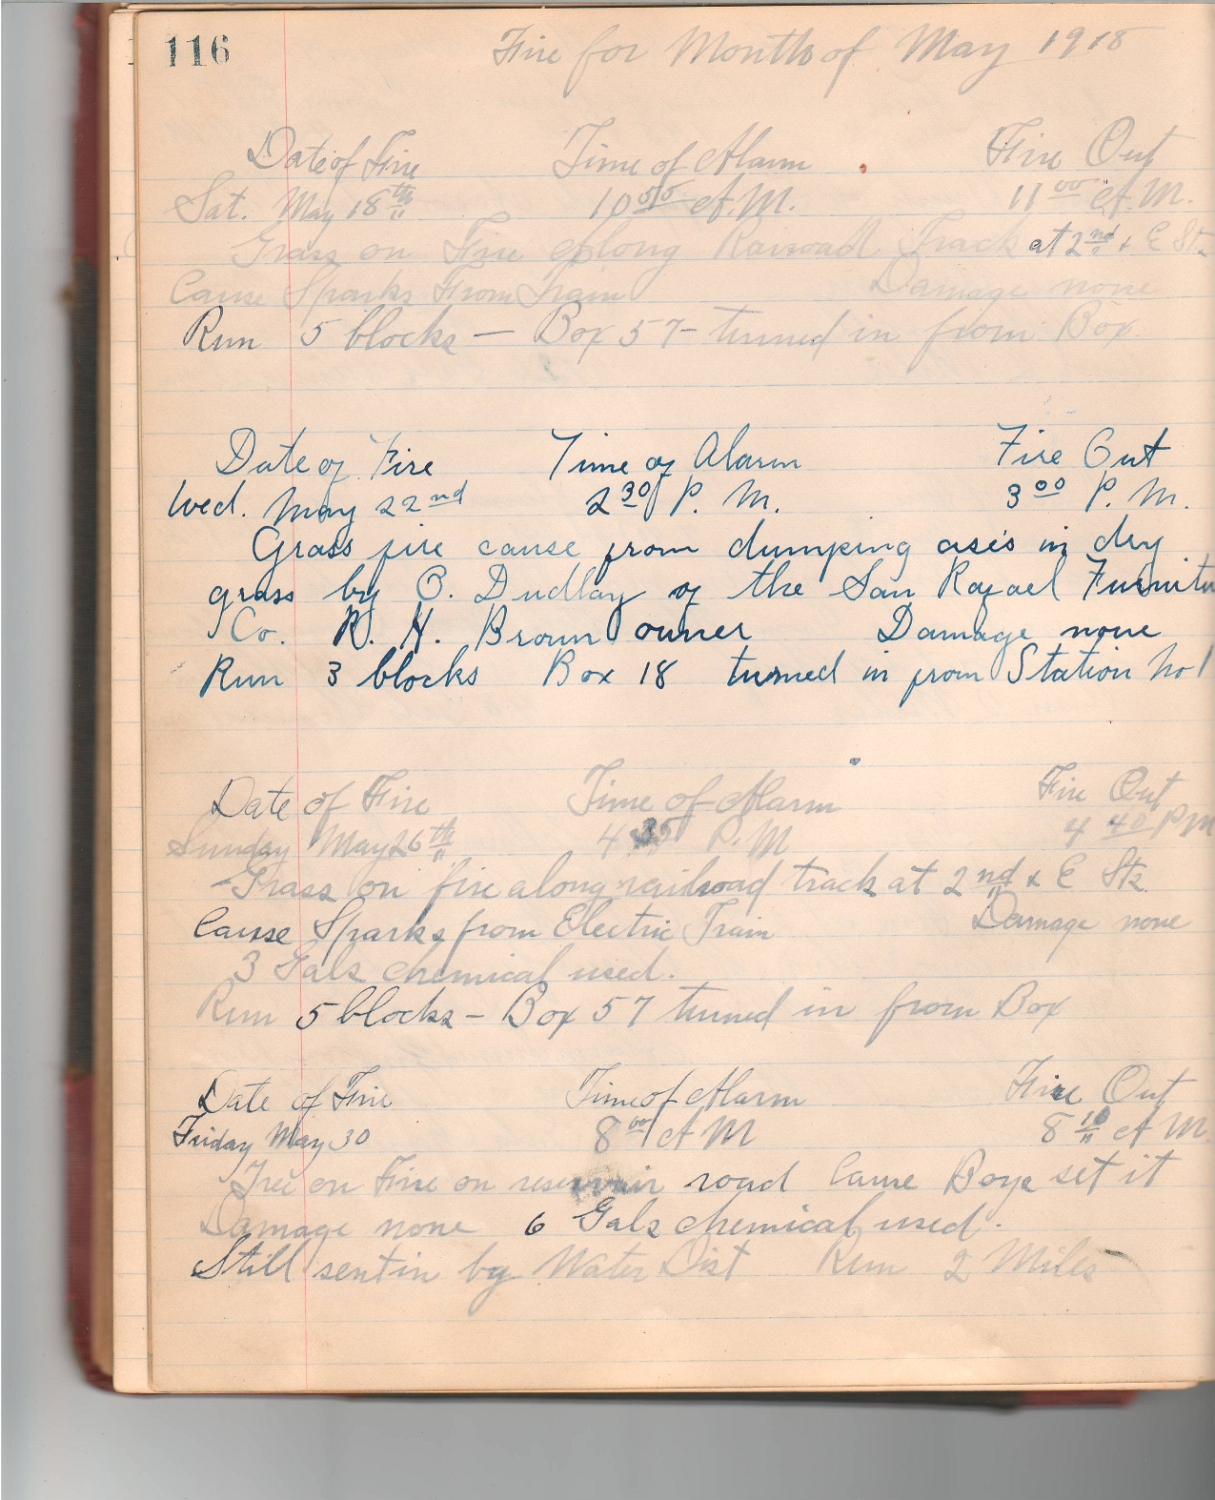 116
Fire for Month of May 1918
Date of Fire Time of Alarm Fire Out
Sat. May 18th 10 55 A.M. 11 00 A.M.
Grass on Fire Along Railroad Track at 2nd & E Sts
Cause Sparks From Train Damage none
Run 5 blocks — Box 57 - turned in from Box
Date of Fire Time of Alarm Fire Out
Wed. May 22nd 2 30 P. M. 3 00 P. M.
Grass fire cause from dumping ases in dry
grass by O. Dudlay of the San Rafael Furnitu
Co. R. H. Brown owner Damage none
Run 3 blocks Box 18 turned in from Station No 1
Date of Fire Time of Alarm Fire Out
Sunday May 26th 4 35 P.M 4 40 PM
Grass on fire along railroad track at 2nd & E Sts
Cause Sparks from Electric Train Damage none
3 Gals chemical used.
Run 5 blocks – Box 57 turned in from Box
Date of Fire Time of Alarm Fire Out
Friday May 30 8 00 A M 8 10 A M
Tree on Fire on reservoir road Cause Boys set it
Damage none 6 Gals chemical used.
Still sent in by Water Dist Run 2 Miles